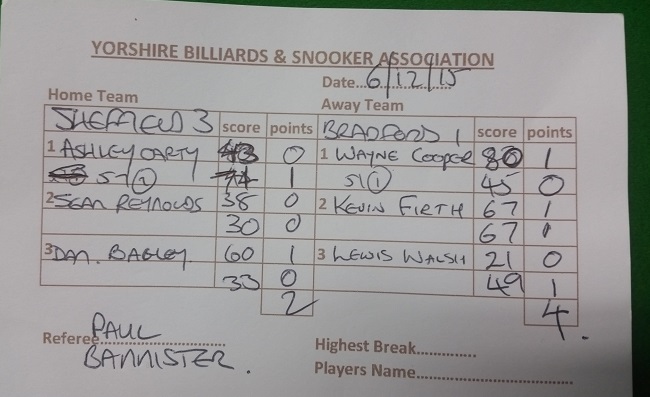 YORSHIRE BILLIARDS & SNOOKER ASSOCIATION
Date...6/12/15
Home Team Away Team
SHEFFIELD 3 score points BRADFORD 1 score points
1 ASHLEY CARTY 43 0 1 WAYNE COOPER 80 1
51 74 1 51 45 0
2 SEAN REYNOLDS 38 0 2 KEVIN FIRTH 67 1
30 0 67 1
3 DAN. BAGLEY. 60 1 3 LEWIS WALSH 21 0
33 0 49 1
2 4.
Referee PAUL
BANNISTER.
Highest Break.............
Players Name..................................